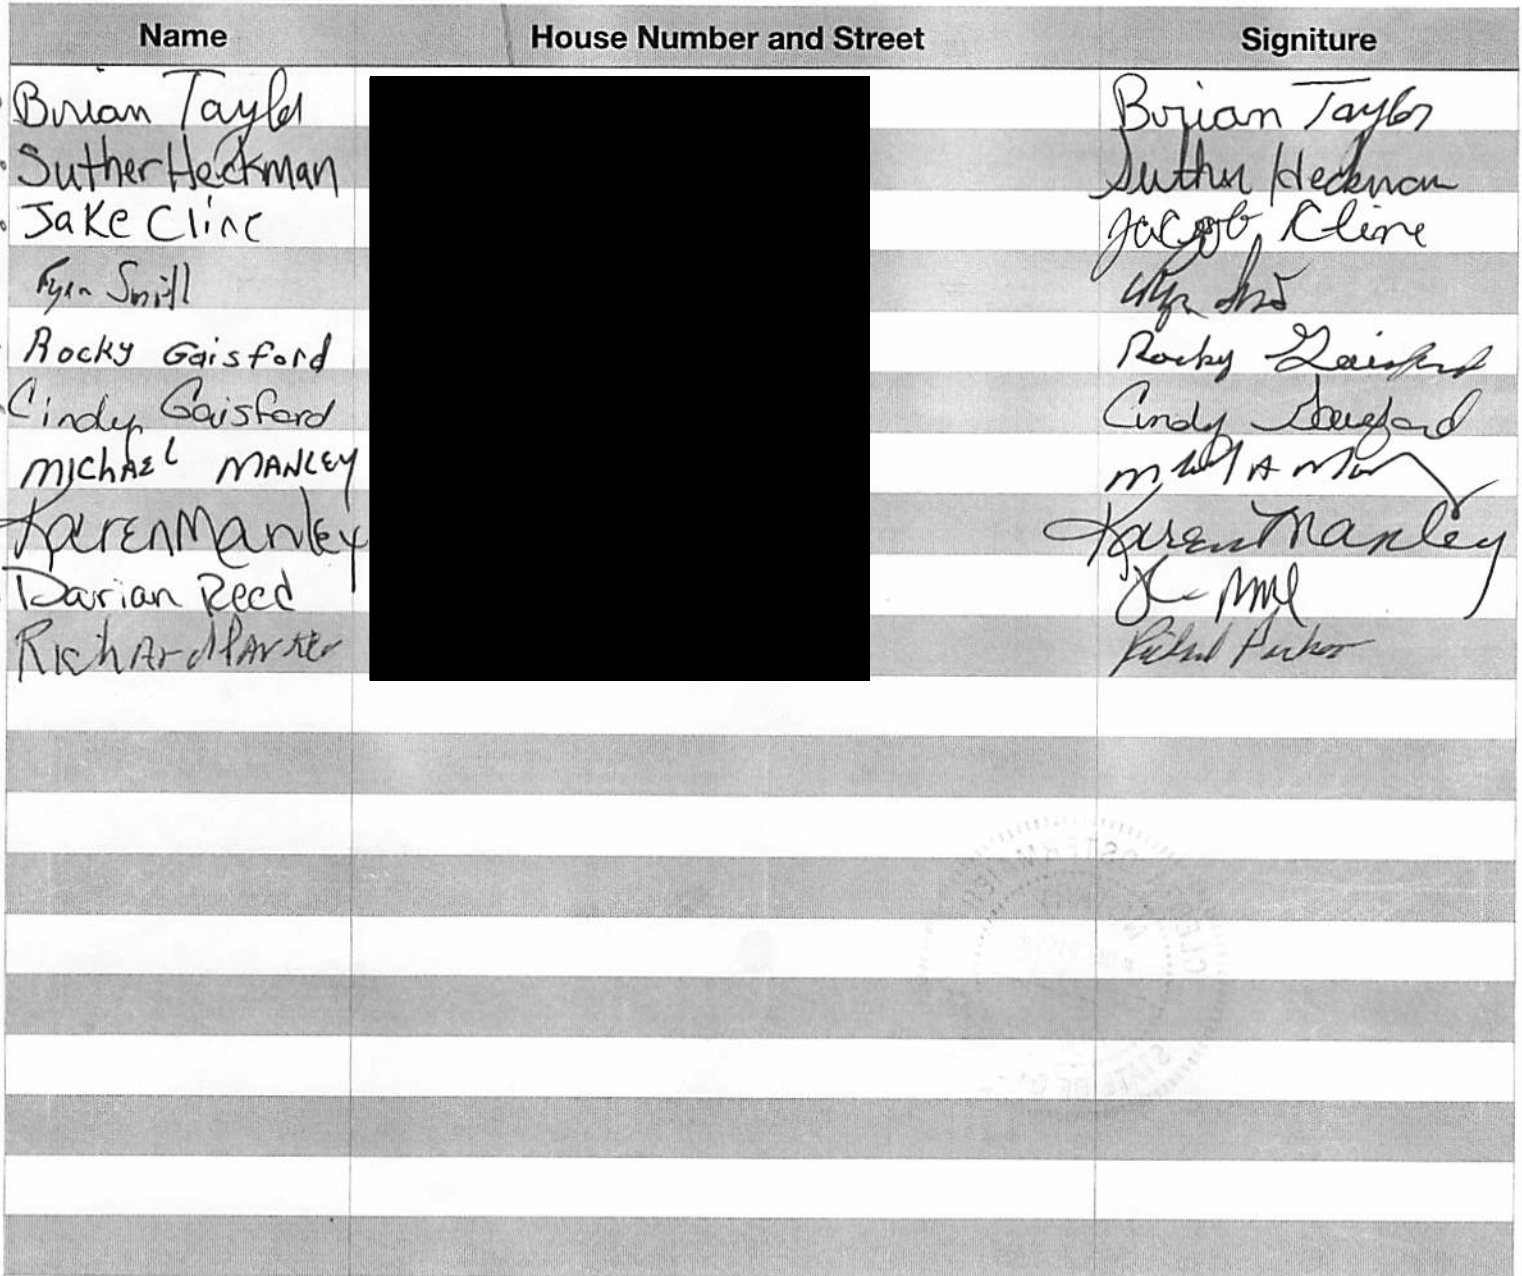 Name House Number and Street Signiture
Brian Taylor Brian Taylor
Suther Heckman Suther Heckman
Jake Cline Jacob Cline
Rocky Gaisford Rocky Gaisford
Cindy Gaisford Cindy Gaisford
MICHAEL MANLEY
Karen Manley Karen Manley
Darian Reed
Richard Parker Richard Parker